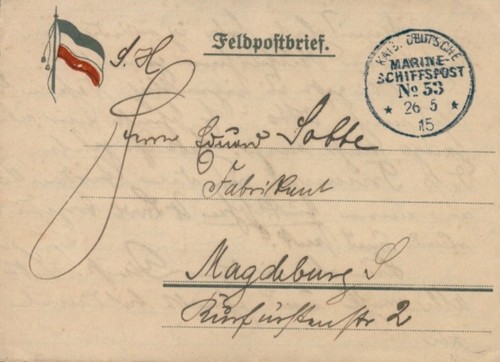 S. H
Feldpostbrief.
KAIS. DEUTSCHE
MARINE-
SCHIFFSPOST
No 53
* 26 5 *
15
Herrn Eduard
Fabrikant
Magdeburg S
Kurfürstenstr 2